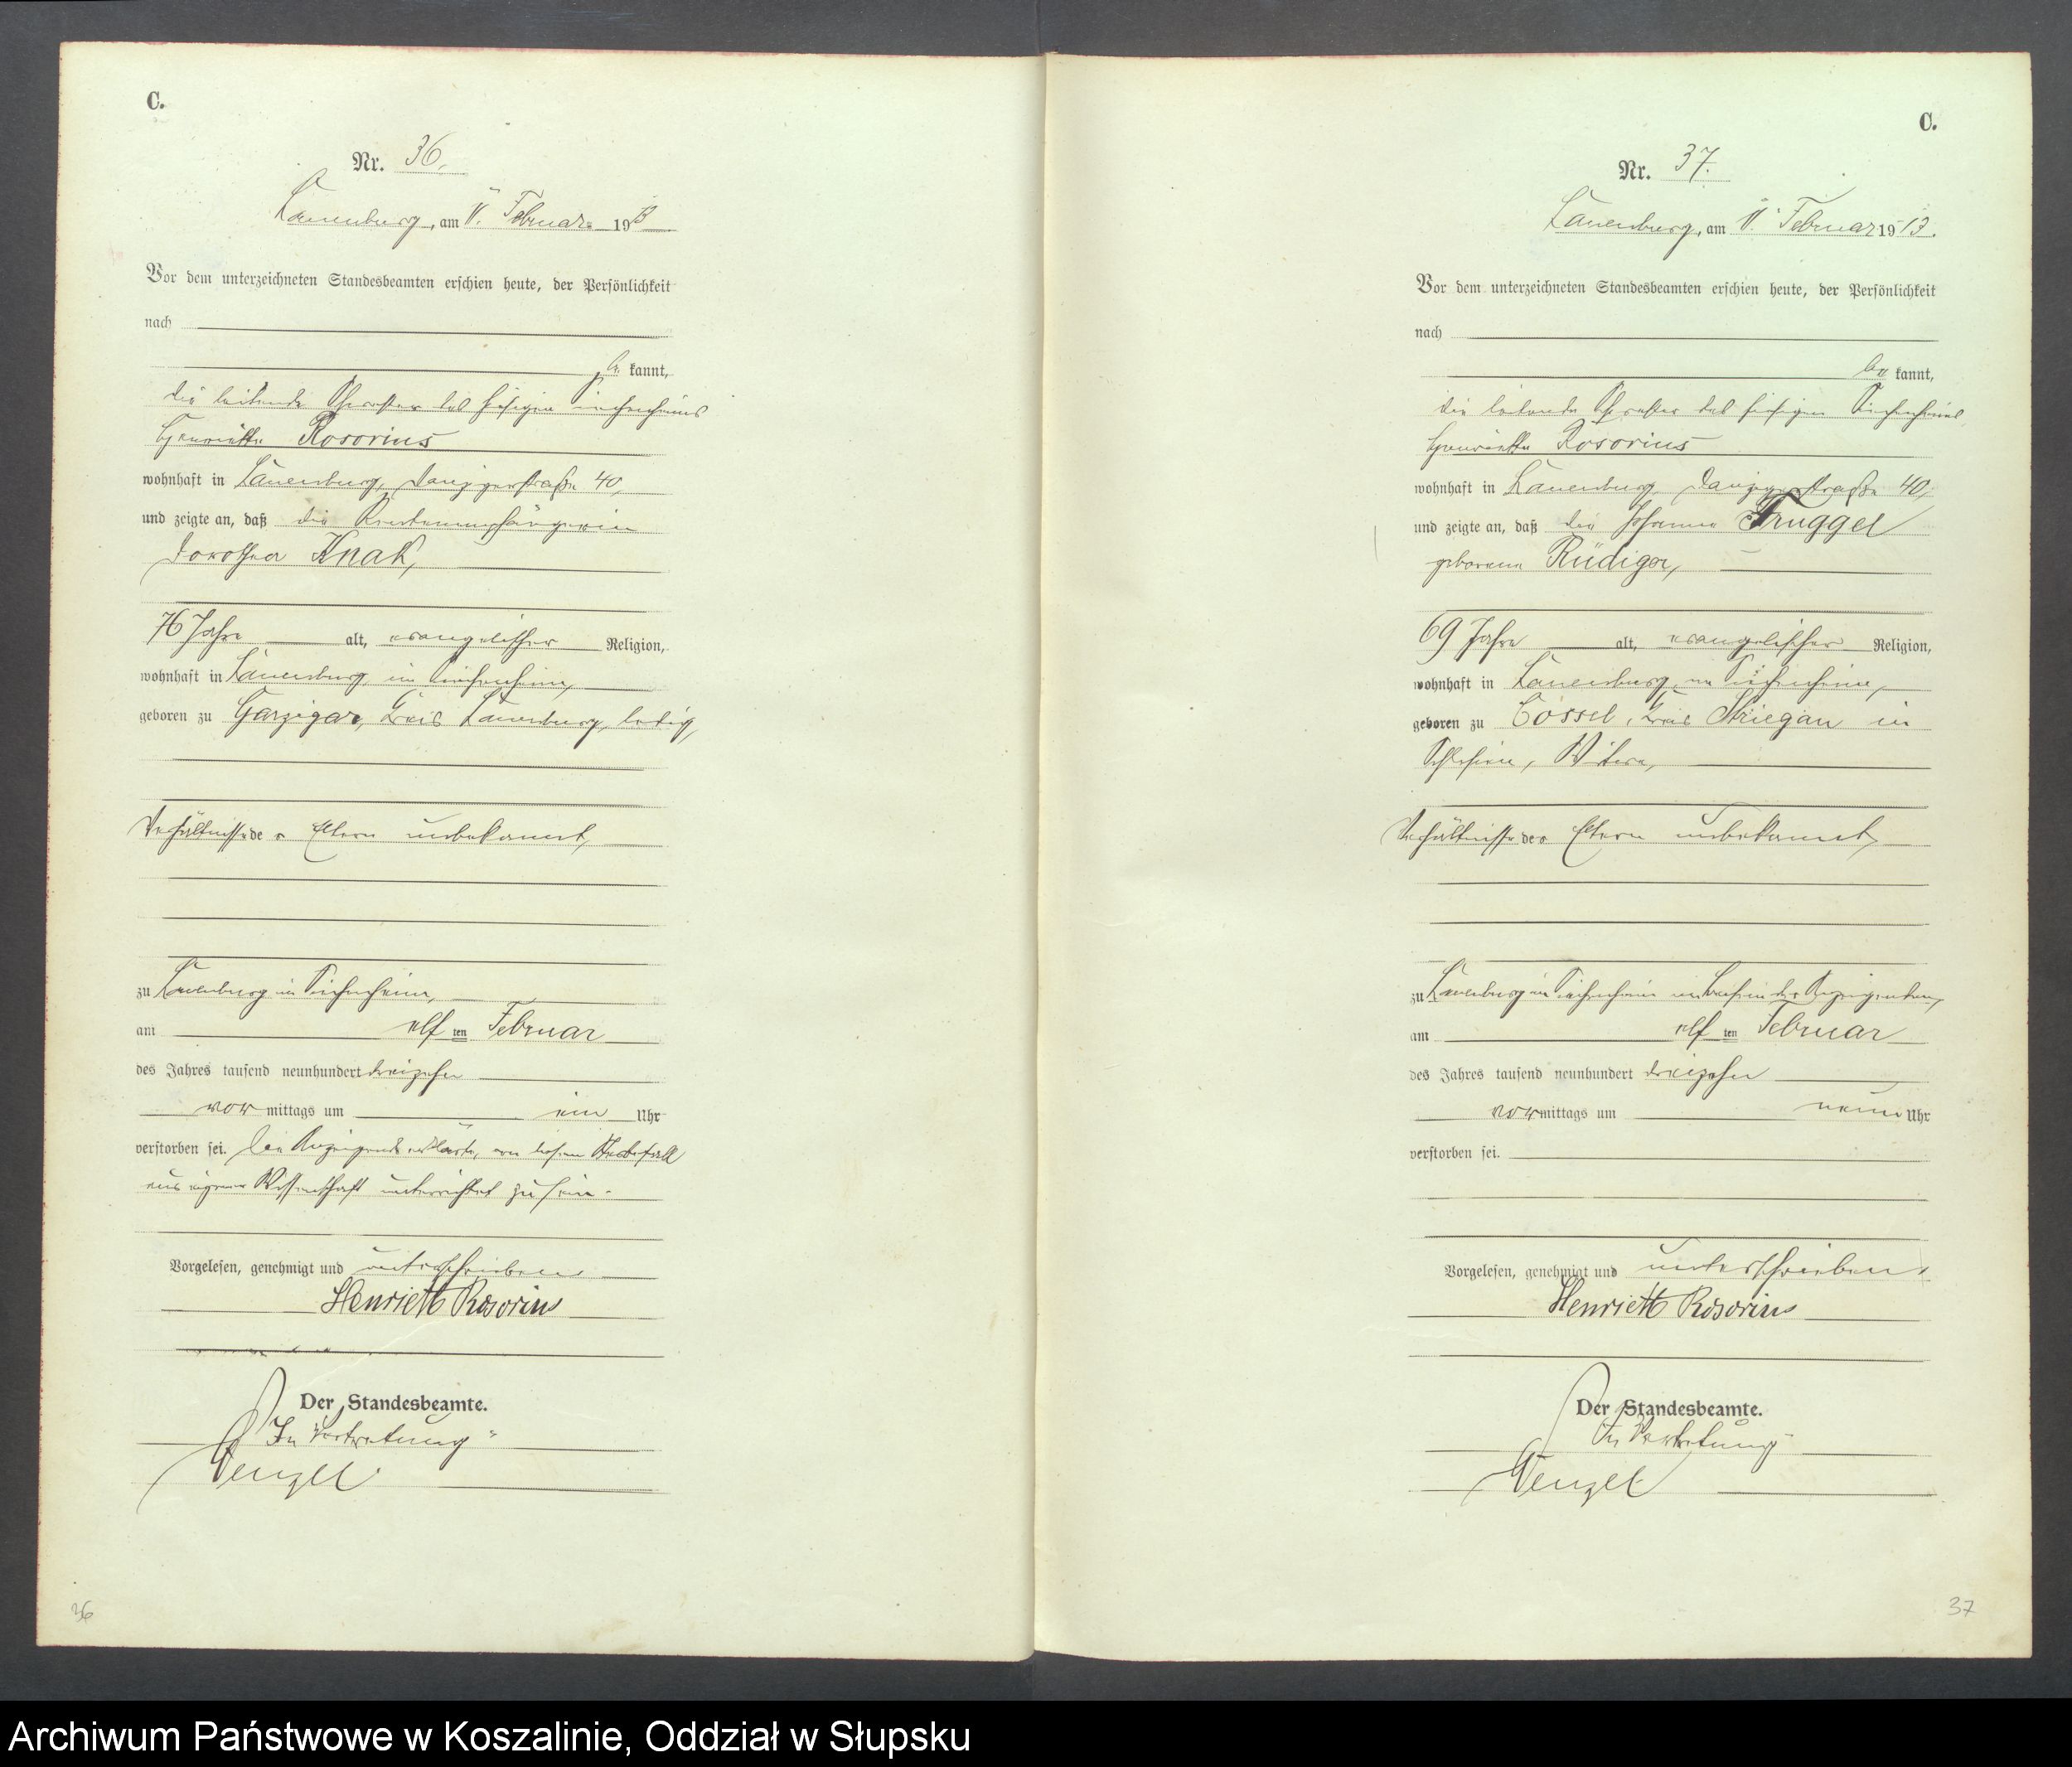 C.
Nr. 36.
Lauenburg, am 11. Februar 1913
Vor dem unterzeichneten Standesbeamten erschien heute, der Persönlichkeit
nach
be kannt,
die leitende Schwester des hiesigen Siechenheims
Henriette Rosorius
wohnhaft in Lauenburg, Danzigerstraße 40,
und zeigte an, daß die Rentenempfängerin
Dorothea Knak,
76 Jahre alt, evangelischer Religion,
wohnhaft in Lauenburg im Siechenheim,
geboren zu Garzigar, Kreis Lauenburg, ledig,
Verhältnisse der Eltern unbekannt,
zu Lauenburg im Siechenheim,
am elften Februar
des Jahres tausend neunhundert dreizehn
vormittags um ein Uhr
verstorben sei. Die Anzeigende erklärte, von diesem Sterbefall
aus eigener Wissenschaft unterrichtet zu sein.
Vorgelesen, genehmigt und unterschrieben
Henriette Rosorius
Der Standesbeamte.
In Vertretung
Wenzel
36
C.
Nr. 37.
Lauenburg, am 11. Februar 1913.
Vor dem unterzeichneten Standesbeamten erschien heute, der Persönlichkeit
nach
be kannt,
die leitende Schwester des hiesigen Siechenheims,
Henriette Rosorius
wohnhaft in Lauenburg, Danzigerstraße 40,
und zeigte an, daß die Johanna Fruggel
geborene Rüdiger,
69 Jahre alt, evangelischer Religion,
wohnhaft in Lauenburg, im Siechenheim,
geboren zu Cossel, Kreis Striegau in
Schlesien, Witwe,
Verhältnisse der Eltern unbekannt,
zu Lauenburg im Siechenheim im Beisein der Anzeigenden,
am elften Februar
des Jahres tausend neunhundert dreizehn
vormittags um neun Uhr
verstorben sei.
Vorgelesen, genehmigt und unterschrieben
Henriette Rosorius
Der Standesbeamte.
In Vertretung
Wenzel
37
Archiwum Państwowe w Koszalinie, Oddział w Słupsku